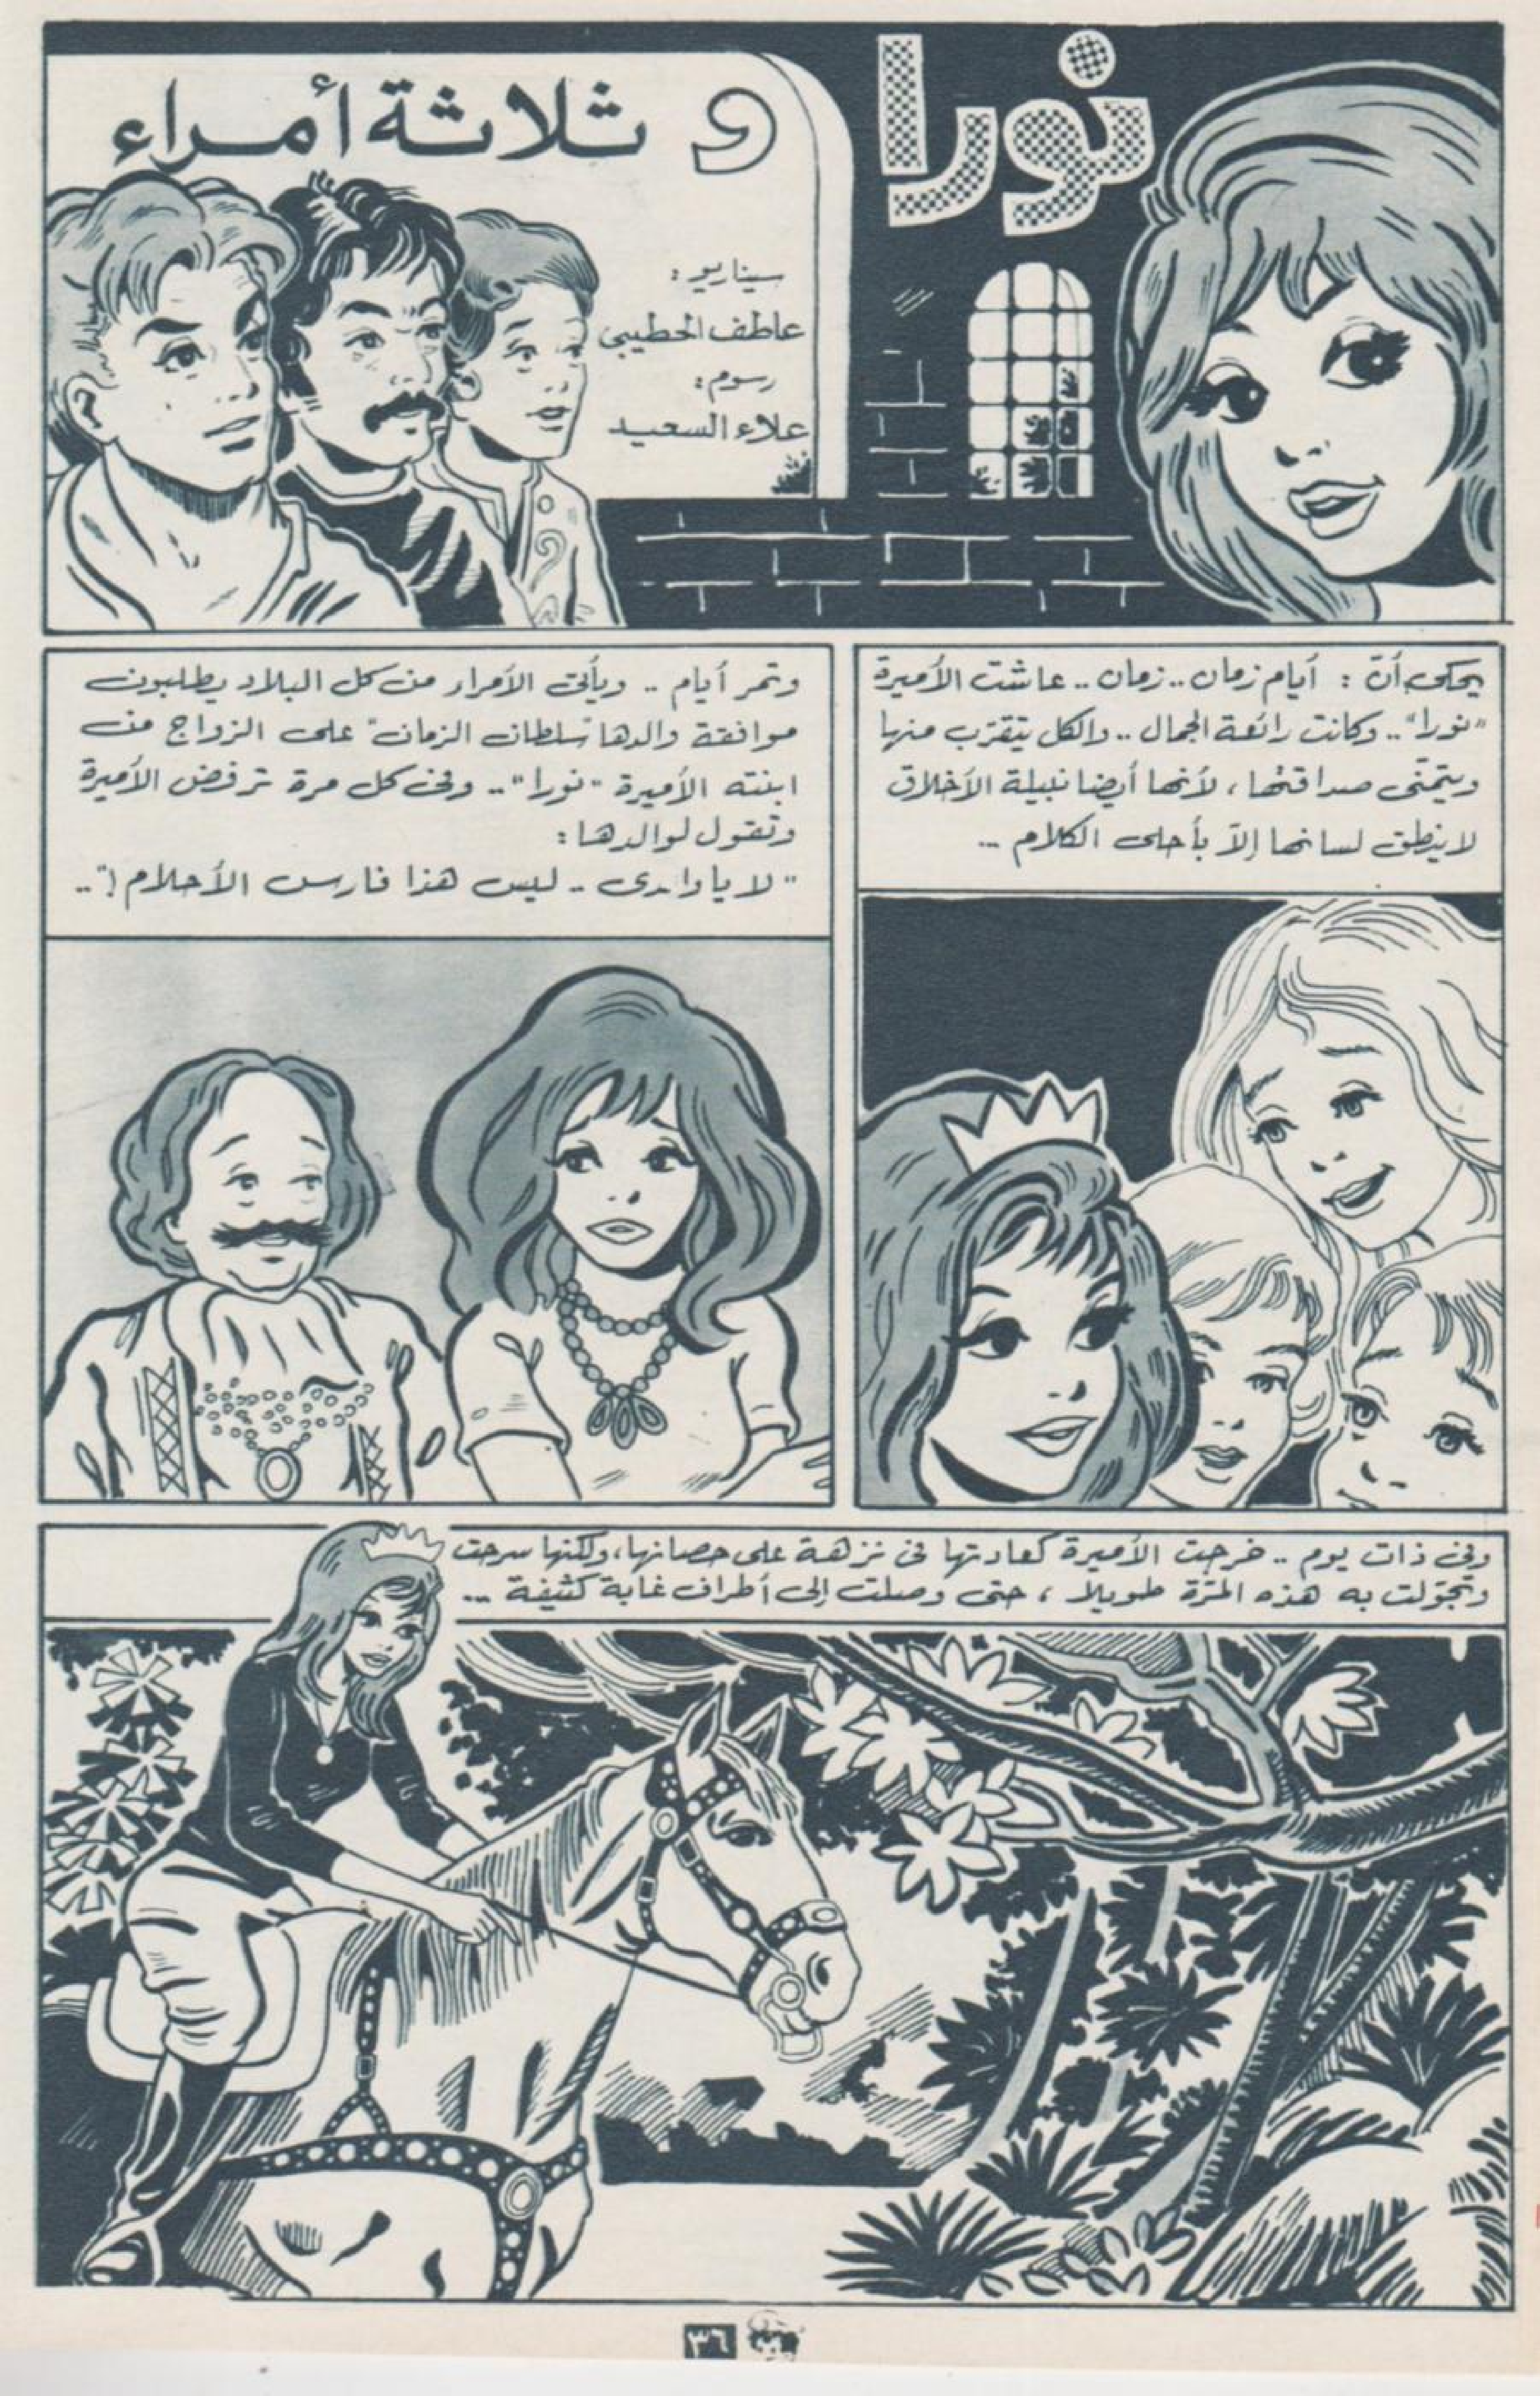 نورا
و ثلاثة أمراء
سيناريو :
عاطف الخطيبى
رسوم :
علاء السعيد
يحكى أنّ : أيام زمان .. زمان .. عاشت الأميرة
"نورا" .. وكانت رائعة الجمال .. والكل يتقرّب منها
ويتمنّى صداقتها ، لأنها أيضا نبيلة الأخلاق
لاينطق لسانها إلاّ بأحلى الكلام ...
وتمر أيام .. ويأتى الأمراء من كل البلاد يطلبون
موافقة والدها "سلطان الزمان" على الزواج من
ابنته الأميرة "نورا" .. وفى كل مرة ترفض الأميرة
وتقول لوالدها :
" لا يا والدى .. ليس هذا فارس الأحلام !" ..
وفى ذات يوم .. خرجت الأميرة كعادتها فى نزهة على حصانها ، ولكنها سرحت
وتجوّلت به هذه المرّة طويلا ، حتى وصلت إلى أطراف غابة كثيفة ...
٣٦